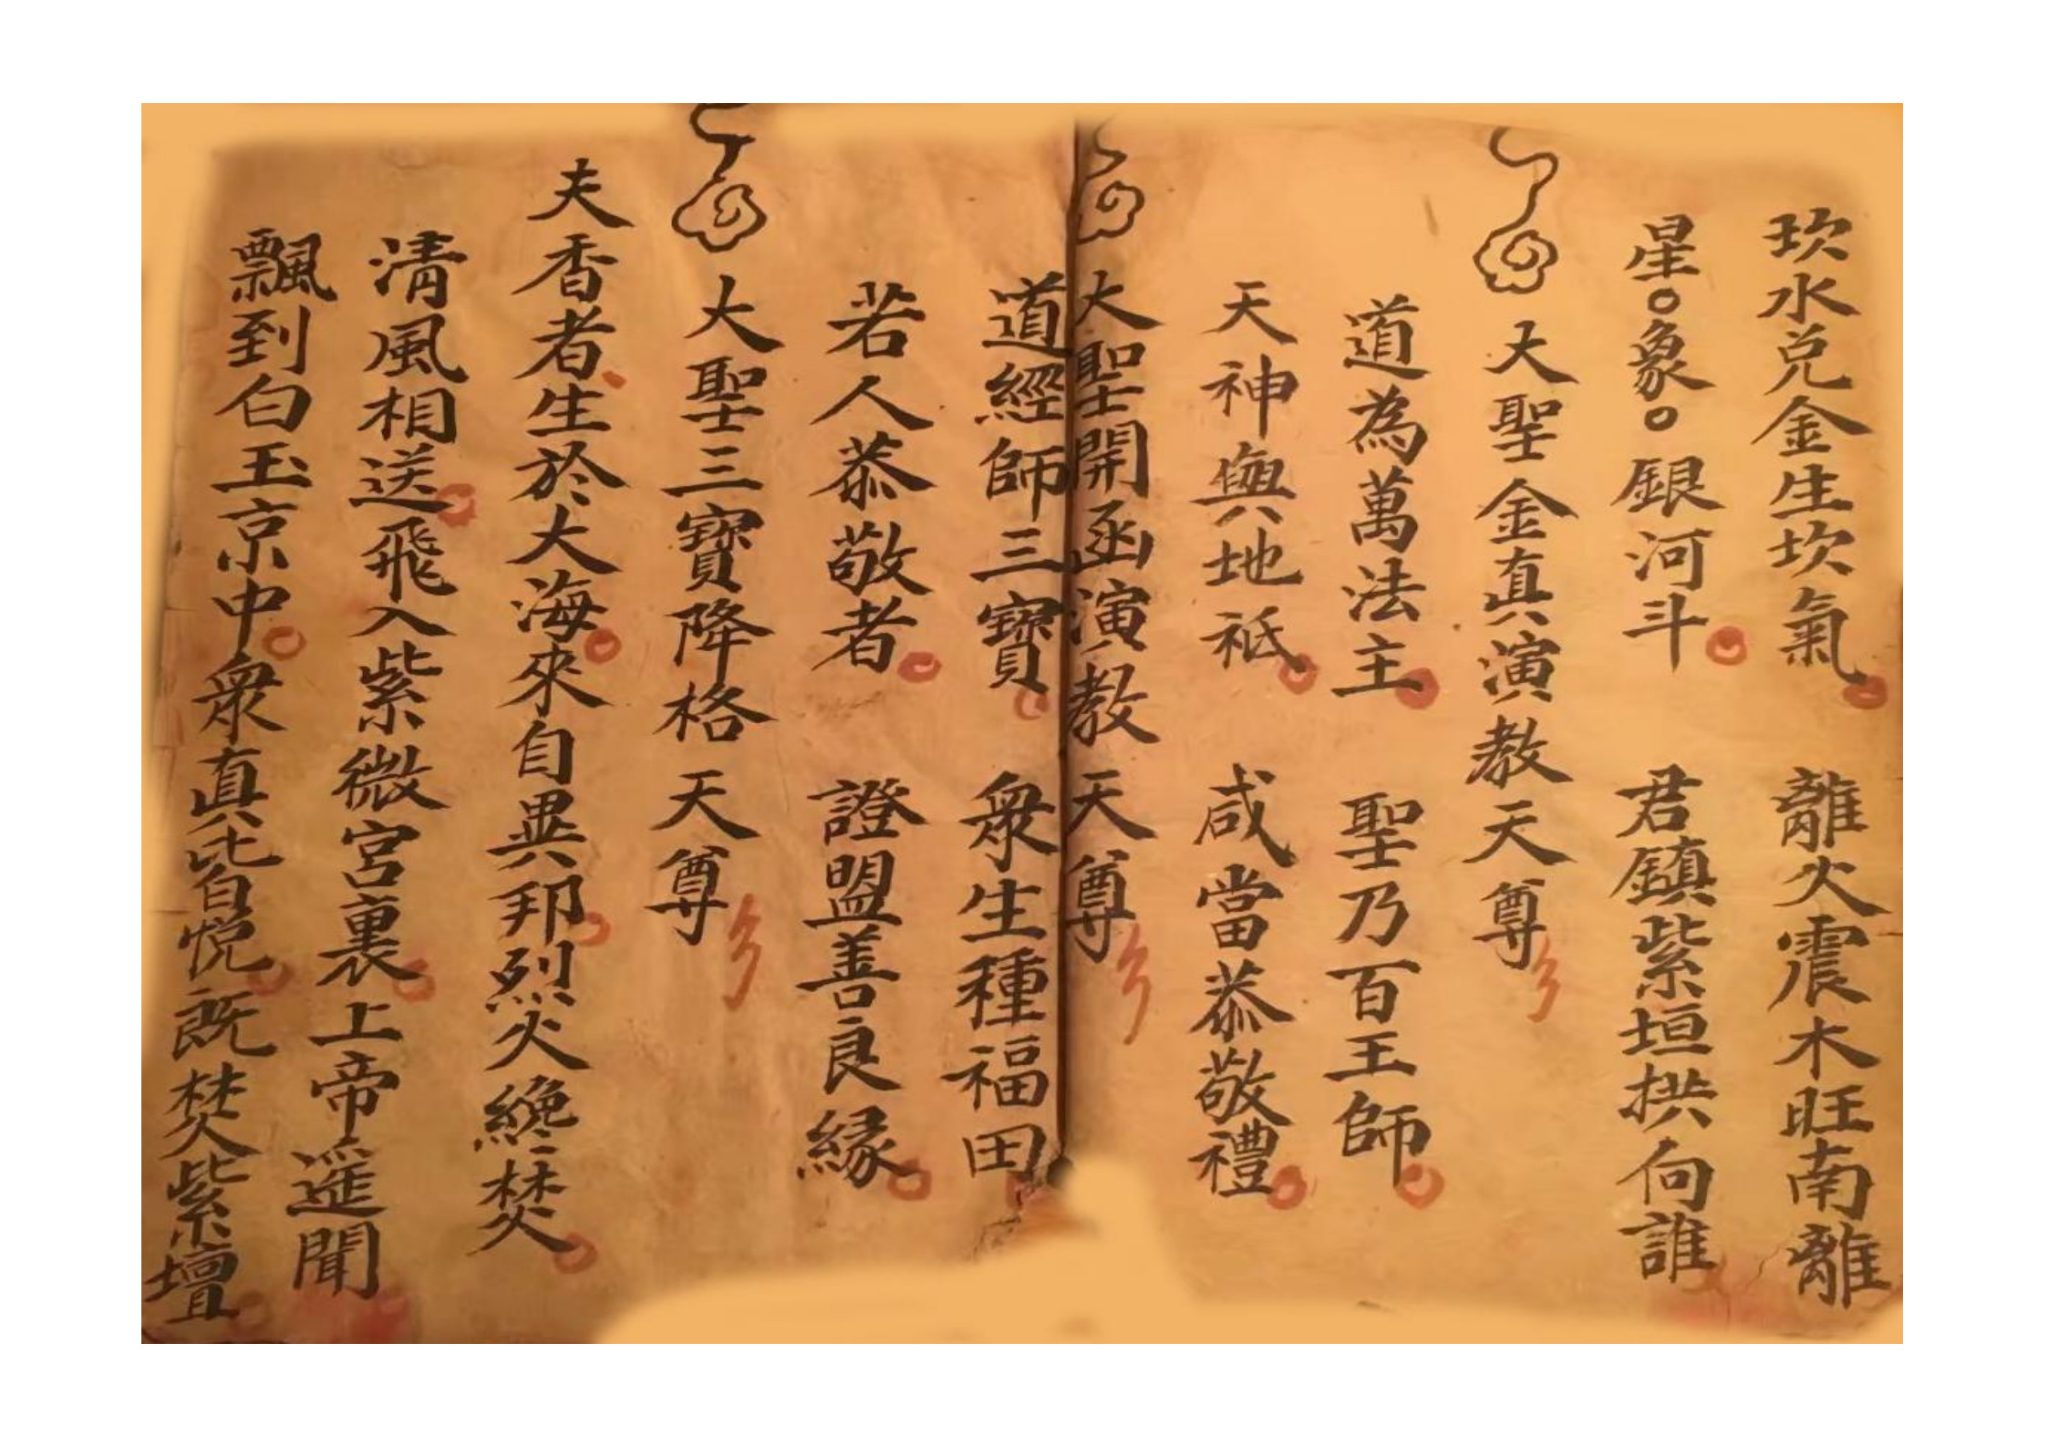 坎水兌金生坎氣 離火震木旺南離
星。象。銀河斗 君鎮紫垣拱向誰
大聖金真演教天尊
道為萬法主 聖乃百王師
天神與地祇 咸當恭敬禮
大聖開函演教天尊
道經師三寶 衆生種福田
若人恭敬者 證盟善良緣
大聖三寶降格天尊
夫香者生於大海來自異邦烈火纔焚
清風相送飛入紫微宮裏上帝遥聞
飄到白玉京中衆真比自悦既焚紫壇